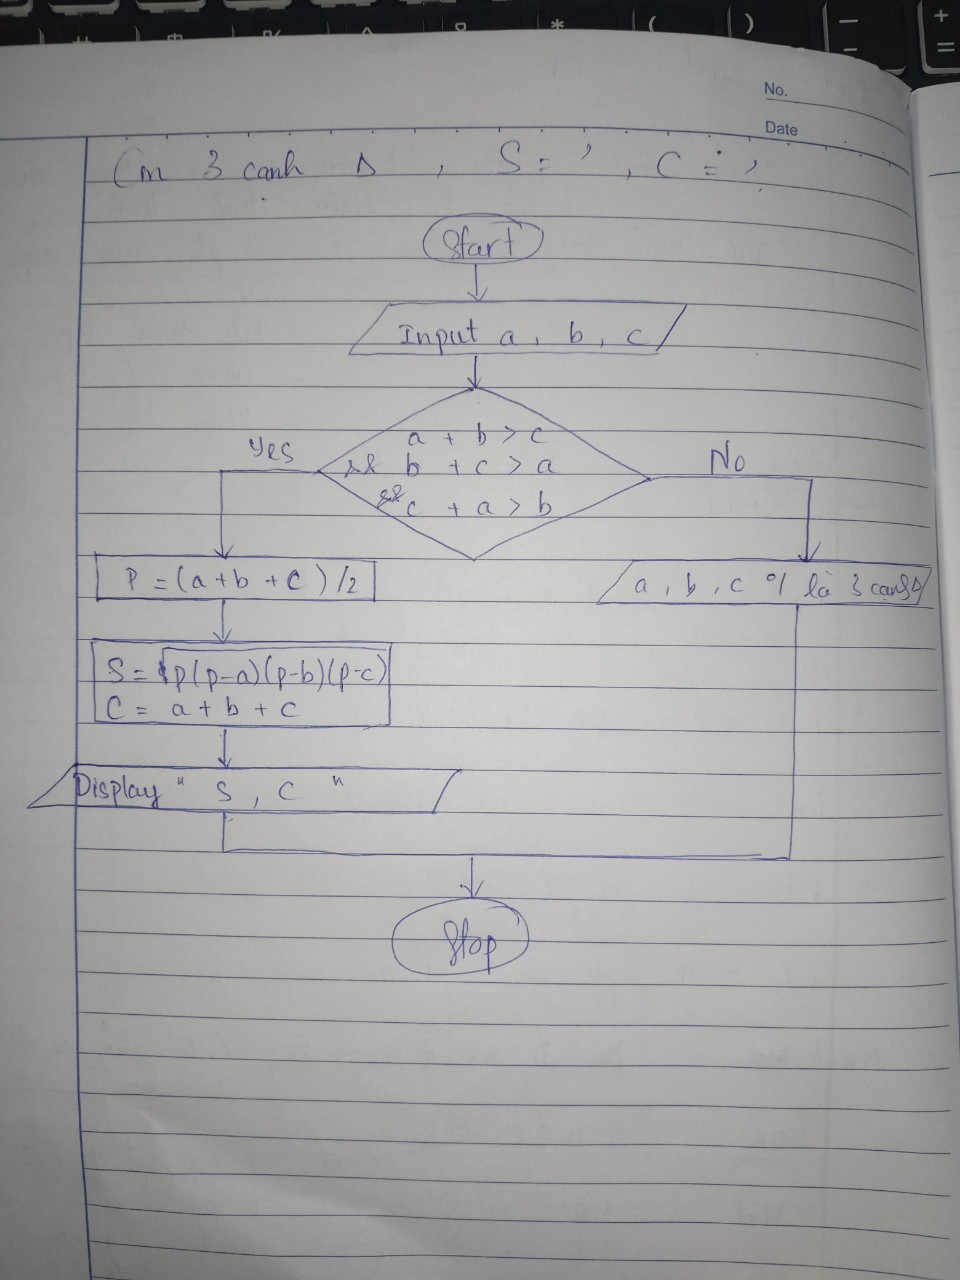 No.
Date
Cm 3 cạnh Δ, S = ?, C = ?
Start
Input a, b, c
a + b > c
&& b + c > a
&& c + a > b
Yes
No
P = (a + b + C) / 2
a, b, c % là 3 cạnh Δ
S = √p(p-a)(p-b)(p-c)
C = a + b + c
Display " S, C "
Stop